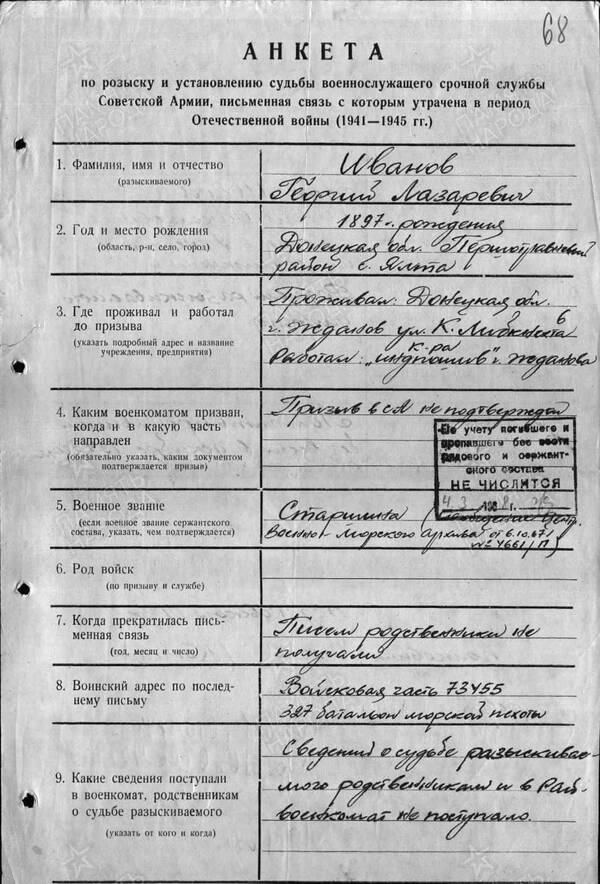 68
АНКЕТА
по розыску и установлению судьбы военнослужащего срочной службы
Советской Армии, письменная связь с которым утрачена в период
Отечественной войны (1941—1945 гг.)
1. Фамилия, имя и отчество
(разыскиваемого)
Иванов
Георгий Лазаревич
2. Год и место рождения
(область, р-н, село, город)
1897 г. рождения
Донецкая обл. Першотравневый
район с. Ялта
3. Где проживал и работал
до призыва
(указать подробный адрес и название
учреждения, предприятия)
Проживал: Донецкая обл.
г. Жданов ул. К. Либкнехта
Работал: "индпошив" г. Жданова
к-ра
4. Каким военкоматом призван,
когда и в какую часть
направлен
(обязательно указать, каким документом
подтверждается призыв)
Призыв в СА не подтвержден
По учету погибшего и
пропавшего без вести
рядового и сержант-
ского состава
НЕ ЧИСЛИТСЯ
5. Военное звание
(если военное звание сержантского
состава, указать, чем подтверждается)
Старшина
Военно-Морского Архива от 6.10.67 г
№ 4661/П)
6. Род войск
(по призыву и службе)
7. Когда прекратилась пись-
менная связь
(год, месяц и число)
Писем родственники не
получали
8. Воинский адрес по послед-
нему письму
Войсковая часть 73455
327 батальон морской пехоты
9. Какие сведения поступали
в военкомат, родственникам
о судьбе разыскиваемого
(указать от кого и когда)
Сведений о судьбе разыскивае-
мого родственникам и в Рай-
военкомат не поступало.